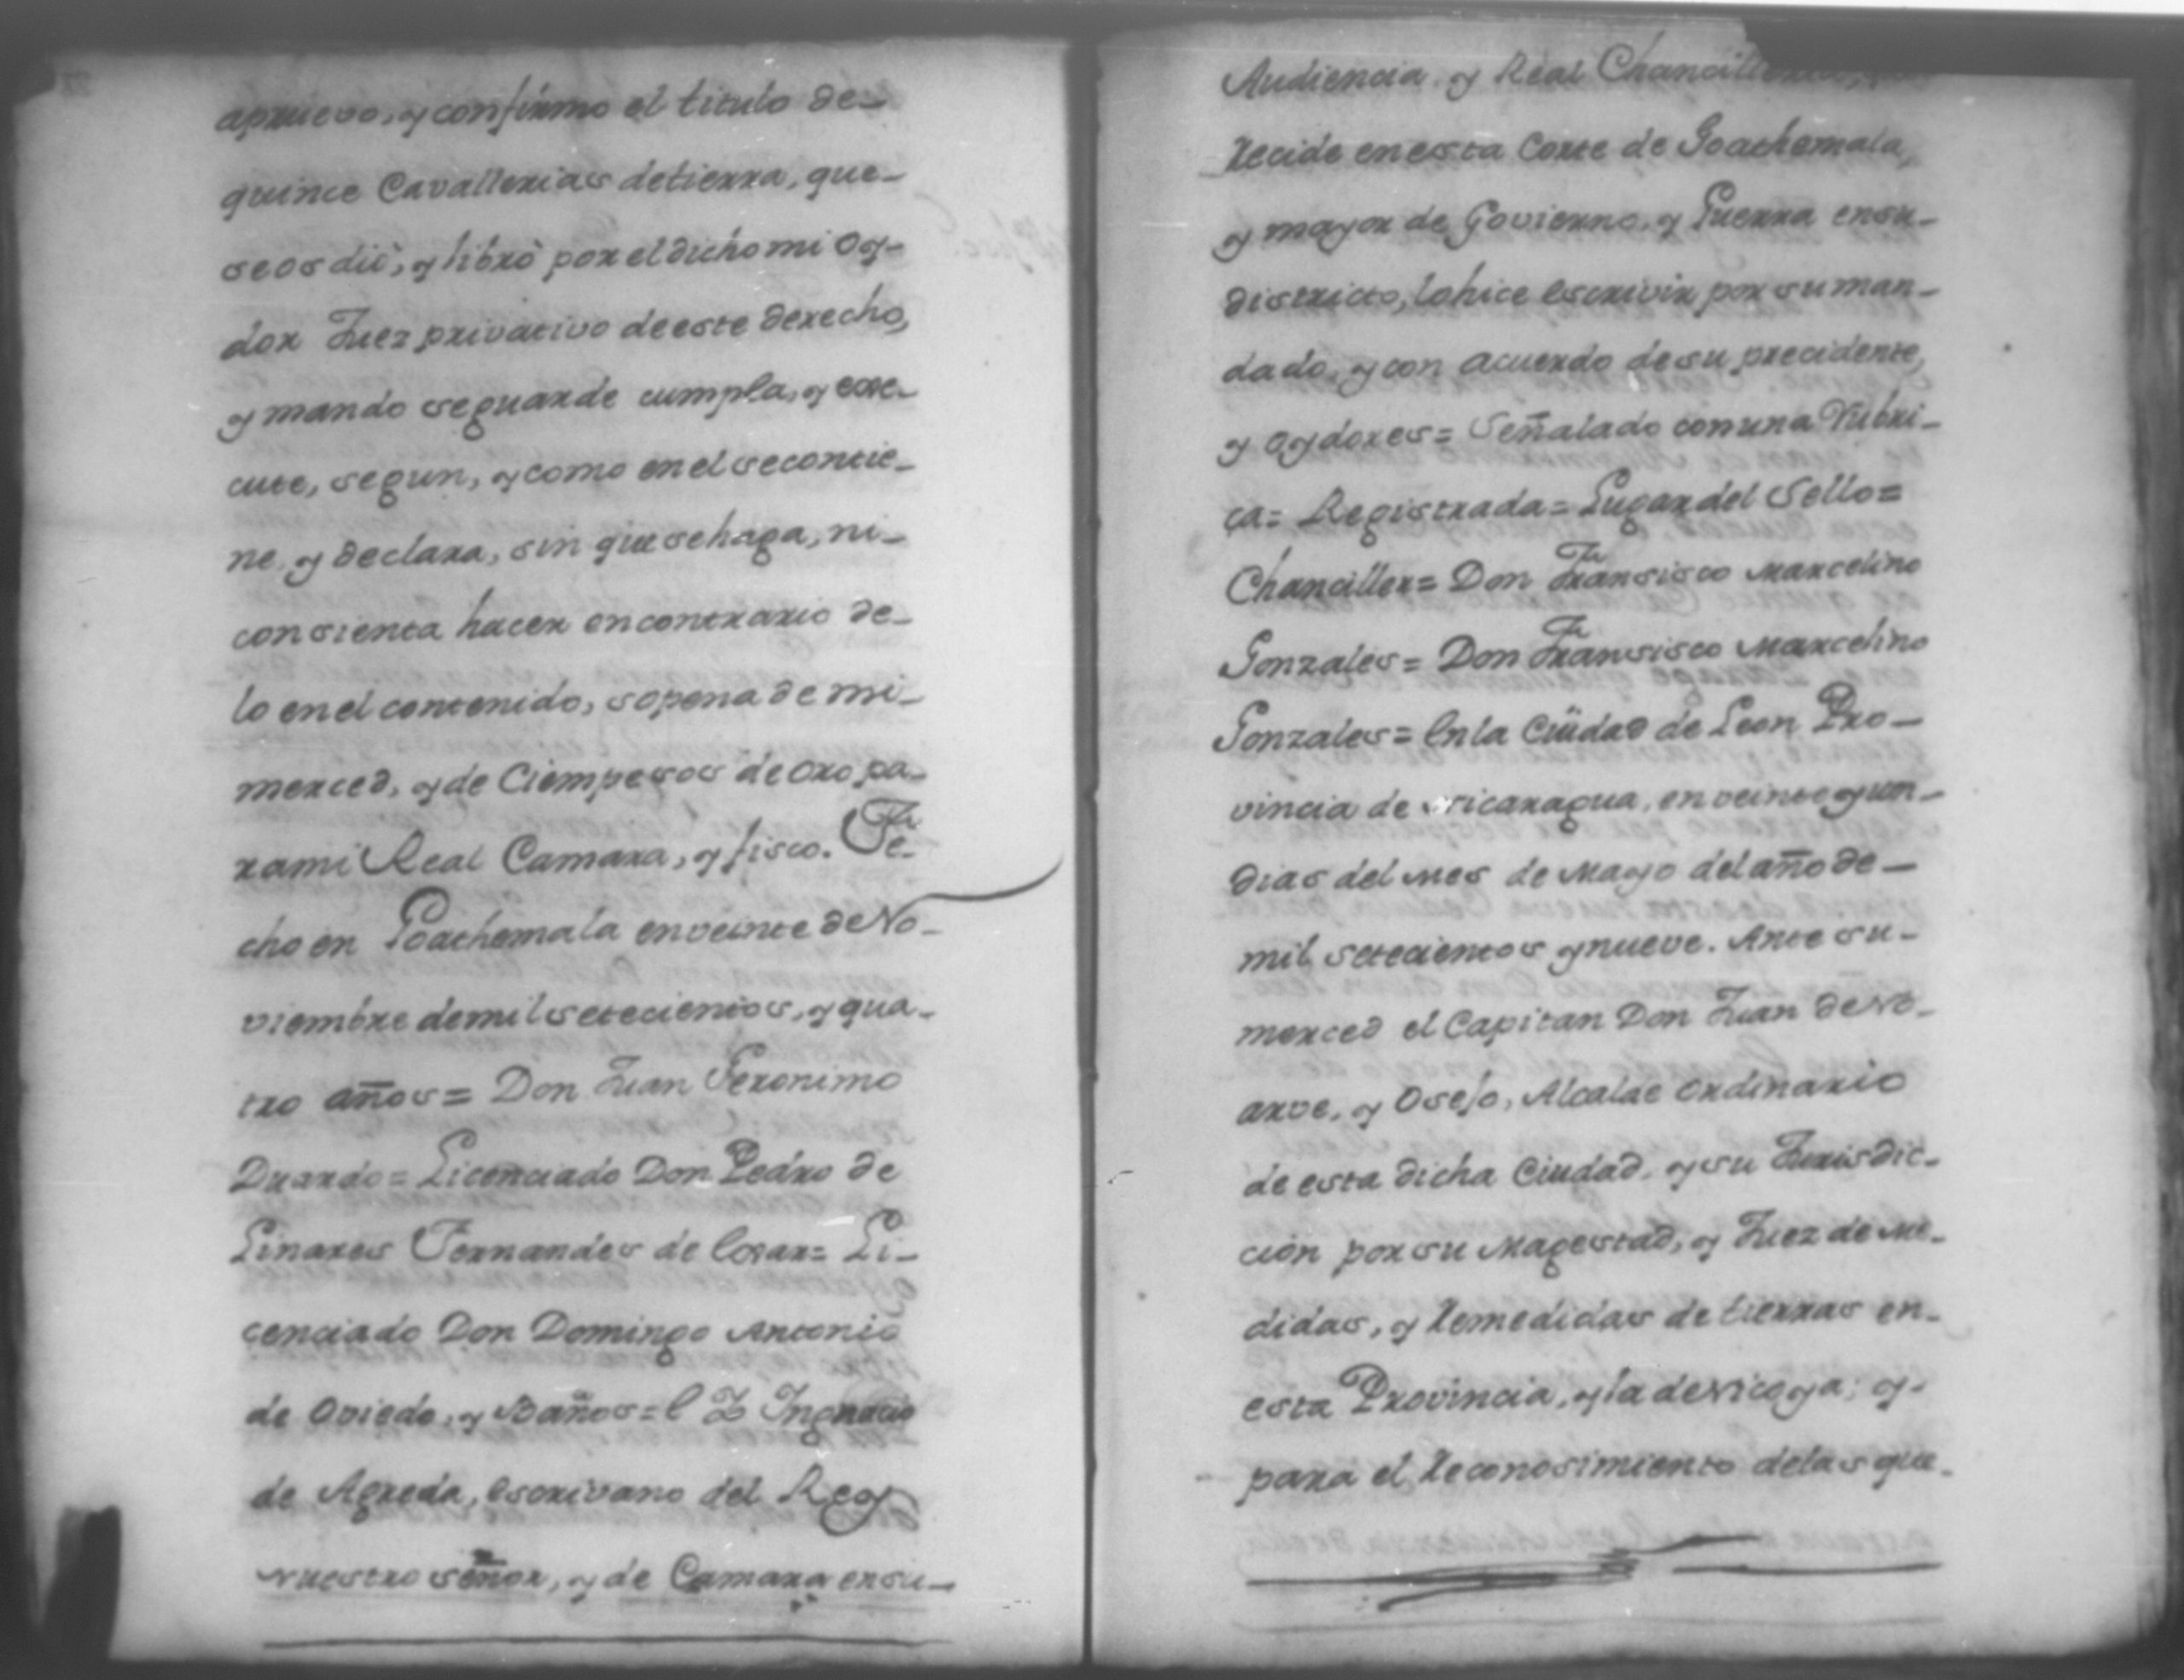 apruevo, y confirmo el titulo de-
quince Cavallerias detierra, que-
seos dió, y libró por el dicho mi Oy-
dor Juez privativo deeste derecho,
y mando seguarde cumpla, y exe-
cute, segun, y como en el secontie-
ne, y declara, sin que sehaga, ni-
consienta hacer encontrario de-
lo en el contenido, sopena de mi-
merced, y de Ciempesos de oro pa-
rami Real Camara, y fisco. Fe-
cho en Goathemala enveinte de No-
viembre demil setecientos, y qua-
tro años = Don Juan Geronimo
Duardo = Licenciado Don Pedro de
Linares Fernandes de Cosar = Li-
cenciado Don Domingo Antonio
de Oviedo, y Baños = Ingnacio
de Agreda, escrivano del Rey
nuestro señor, y de Camara ensu-
Audiencia y Real
Recide enesta Corte de Goathemala,
y mayor de Govierno, y Guerra ensu-
districto, lo hice escrivir por su man-
dado, y con acuerdo de su precidente,
y oydores = Señalado conuna Rubri-
ca = Registrada = Lugar del Sello =
Chanciller = Don Fransisco Marcelino
Gonzales = Don Fransisco Marcelino
Gonzales = En la Ciudad de Leon Pro-
vincia de Nicaragua, en veinte y un-
dias del mes de Mayo del año de-
mil setecientos y nueve. Ante su-
merced el Capitan Don Juan de No-
arve, y Osejo, Alcalde ordinario
de esta dicha Ciudad, y su Jurisdic-
ción por su Magestad, y Juez de Me-
didas, y Remedidas de tierras en-
esta Provincia, y la de Nicoya; y-
para el Reconosimiento delas que-